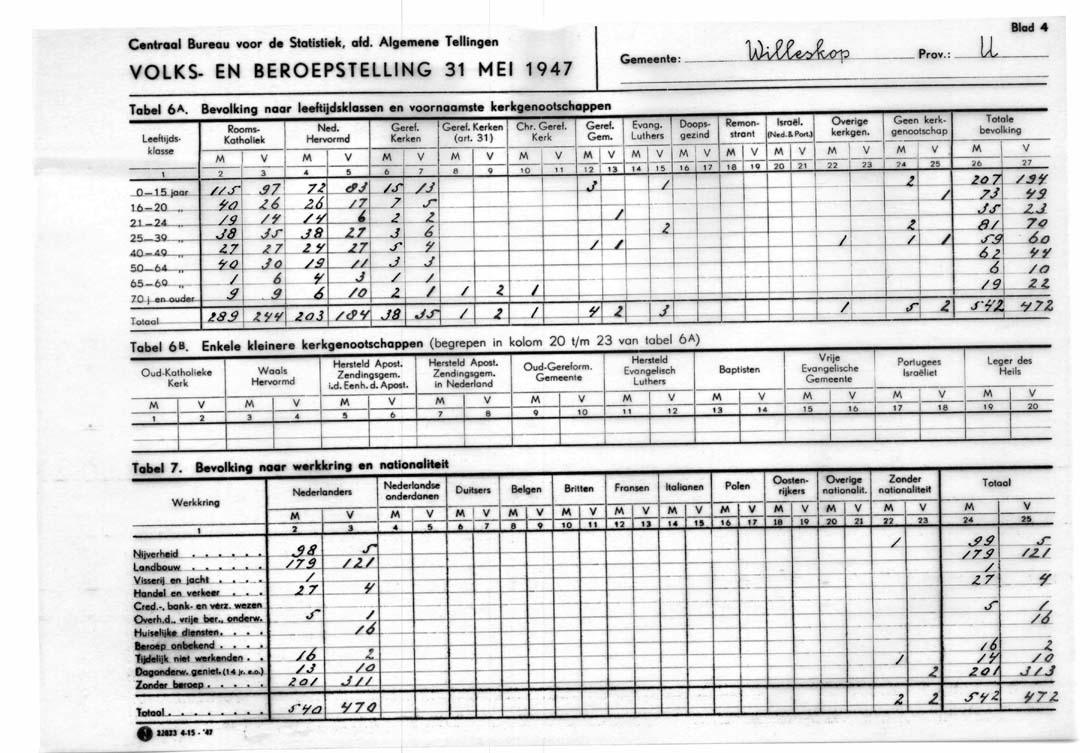 Blad 4
Centraal Bureau voor de Statistiek, afd. Algemene Tellingen
VOLKS- EN BEROEPSTELLING 31 MEI 1947
Gemeente: Willeskop Prov.: U
Tabel 6A. Bevolking naar leeftijdsklassen en voornaamste kerkgenootschappen
Leeftijds-klasse | Rooms-Katholiek | Ned. Hervormd | Geref. Kerken | Geref. Kerken (art. 31) | Chr. Geref. Kerk | Geref. Gem. | Evang. Luthers | Doops-gezind | Remon-strant | Israël. (Ned. & Port.) | Overige kerkgen. | Geen kerk-genootschap | Totale bevolking
M V M V M V M V M V M V M V M V M V M V M V M V M V
1 2 3 4 5 6 7 8 9 10 11 12 13 14 15 16 17 18 19 20 21 22 23 24 25 26 27
0-15 jaar 115 97 72 83 15 13 3 1 2 207 194
16-20 „ 40 26 26 17 7 5 1 73 49
21-24 „ 19 14 14 6 2 2 1 35 23
25-39 „ 38 35 38 27 3 6 2 2 81 70
40-49 „ 27 27 24 27 5 4 1 1 1 1 1 59 60
50-64 „ 40 30 19 11 3 3 62 44
65-69 „ 1 6 4 3 1 1 6 10
70 j. en ouder 9 9 6 10 2 1 1 2 1 19 22
Totaal 289 244 203 184 38 35 1 2 1 4 2 3 1 5 2 542 472
Tabel 6B. Enkele kleinere kerkgenootschappen (begrepen in kolom 20 t/m 23 van tabel 6A)
Oud-Katholieke Kerk | Waals Hervormd | Hersteld Apost. Zendingsgem. i.d. Eenh. d. Apost. | Hersteld Apost. Zendingsgem. in Nederland | Oud-Gereform. Gemeente | Hersteld Evangelisch Luthers | Baptisten | Vrije Evangelische Gemeente | Portugees Israëliet | Leger des Heils
M V M V M V M V M V M V M V M V M V M V
1 2 3 4 5 6 7 8 9 10 11 12 13 14 15 16 17 18 19 20
Tabel 7. Bevolking naar werkkring en nationaliteit
Werkkring | Nederlanders | Nederlandse onderdanen | Duitsers | Belgen | Britten | Fransen | Italianen | Polen | Oosten-rijkers | Overige nationalit. | Zonder nationaliteit | Totaal
M V M V M V M V M V M V M V M V M V M V M V M V
1 2 3 4 5 6 7 8 9 10 11 12 13 14 15 16 17 18 19 20 21 22 23 24 25
Nijverheid . . . . . . 98 5 1 99 5
Landbouw . . . . . . 179 121 179 121
Visserij en jacht . . . . 1 1
Handel en verkeer . . . 27 4 27 4
Cred.-, bank- en verz. wezen
Overh.d., vrije ber., onderw. 5 1 5 1
Huiselijke diensten. . . . 16 16
Beroep onbekend . . . .
Tijdelijk niet werkenden . . 16 2 16 2
Dagonderw. geniet. (14 jr. e.o.) 13 10 1 14 10
Zonder beroep . . . . . 201 311 2 201 313
Totaal . . . . . . . 540 470 2 2 542 472
22823 4-15 - '47